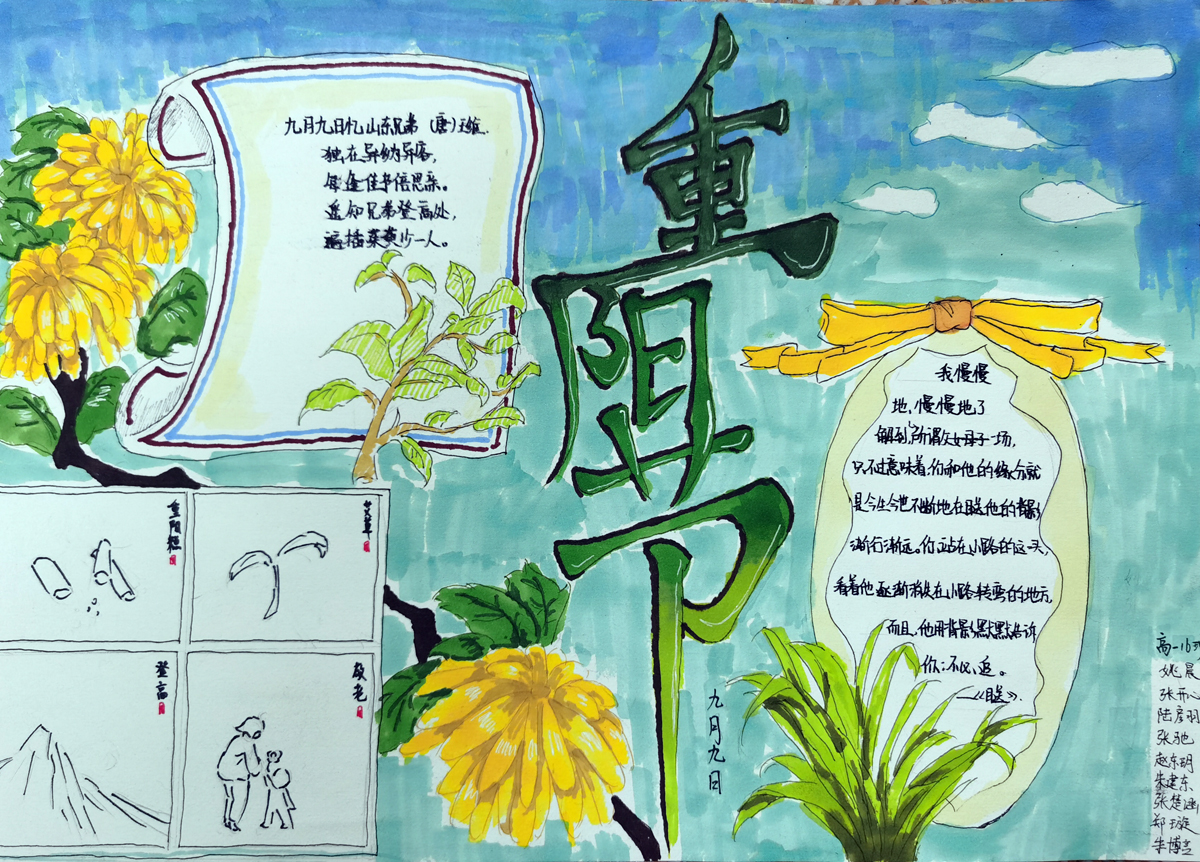 重阳节
九月九日忆山东兄弟 (唐)王维
独在异乡为异客,
每逢佳节倍思亲。
遥知兄弟登高处,
遍插茱萸少一人。
重阳糕
艾草
登高
敬老
九月九日
我慢慢
地,慢慢地了
解到,所谓父女母子一场,
只不过意味着,你和他的缘分就
是今生今世不断地在目送他的背影
渐行渐远。你站在小路的这一头,
看着他逐渐消失在小路转弯的地方,
而且,他用背影默默告诉
你:不必追。
——《目送》
高一16班
姚晨
张开心
陆彦羽
张驰
赵东玥
朱建东
张楚涵
郑璇
朱博